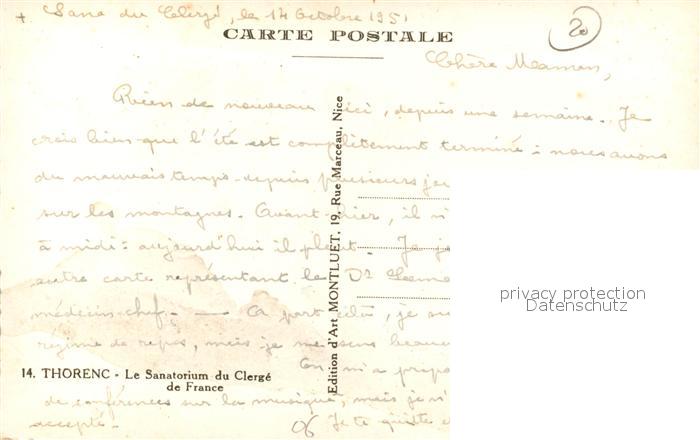 + Sana du Clergé, le 14 Octobre 1951
20
CARTE POSTALE
Chère Maman,
Rien de nouveau ici, depuis une semaine. Je
crois bien que l'été est complètement terminé : nous avons
du mauvais temps depuis plusieurs
sur les montagnes. Avant-hier, il
à midi : aujourd'hui il pleut. Je
autre carte représentant le Dr
médecin-chef. — A part cela, je
régime de repos, mais je me sens
On m'a
14. THORENC - Le Sanatorium du Clergé
de France
de conférences sur la musique, mais je
accepté. - 06 Je te quitte
Edition d'Art MONTLUET, 19, Rue Marceau, Nice
privacy protection
Datenschutz